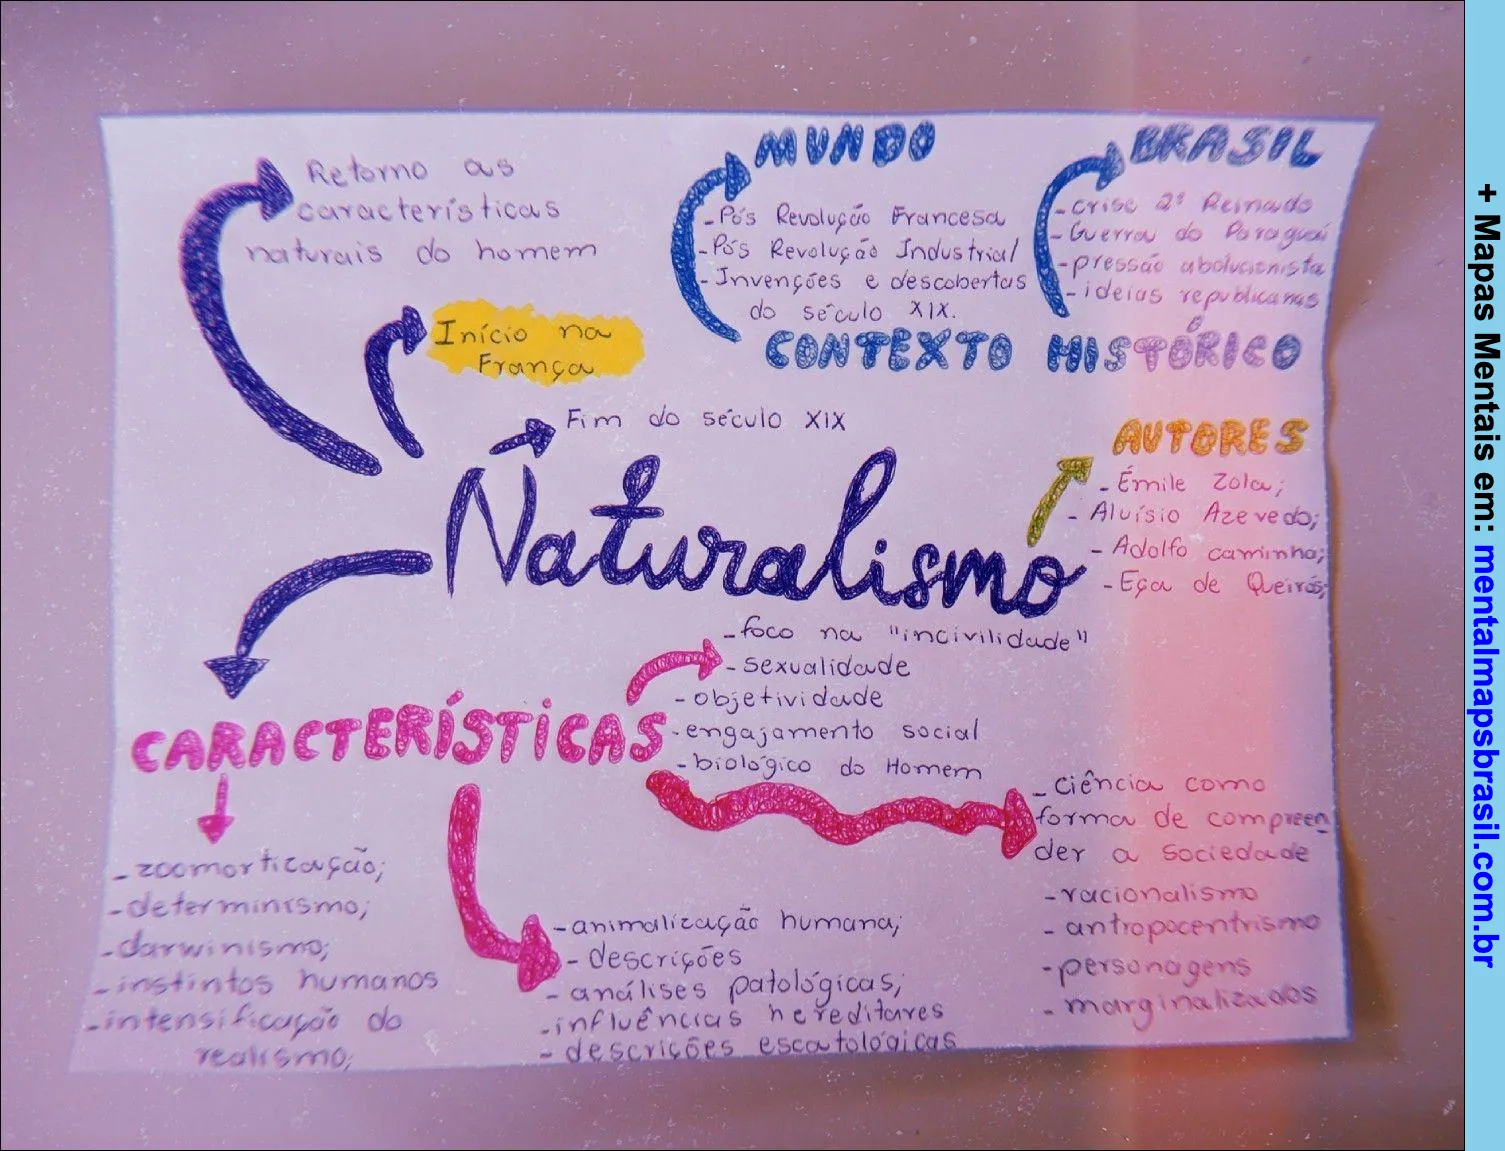 Retorno as
características
naturais do homem
Início na
França
Fim do século XIX
Naturalismo
MUNDO
- Pós Revolução Francesa
- Pós Revolução Industrial
- Invenções e descobertas
do século XIX.
BRASIL
- crise 2º Reinado
- Guerra do Paraguai
- pressão abolucionista
- ideias republicanas
CONTEXTO HISTÓRICO
AUTORES
- Émile Zola;
- Aluísio Azevedo;
- Adolfo caminha;
- Eça de Queirós;
CARACTERÍSTICAS
- foco na "incivilidade"
- sexualidade
- objetividade
- engajamento social
- biológico do Homem
- ciência como
forma de compreen
der a sociedade
- racionalismo
- antropocentrismo
- personagens
- marginalizados
- zoomorticação;
- determinismo;
- darwinismo;
- instintos humanos
- intensificação do
realismo;
- animalização humana;
- descrições
- análises patológicas;
- influências hereditares
- descrições escatológicas
+ Mapas Mentais em: mentalmapsbrasil.com.br